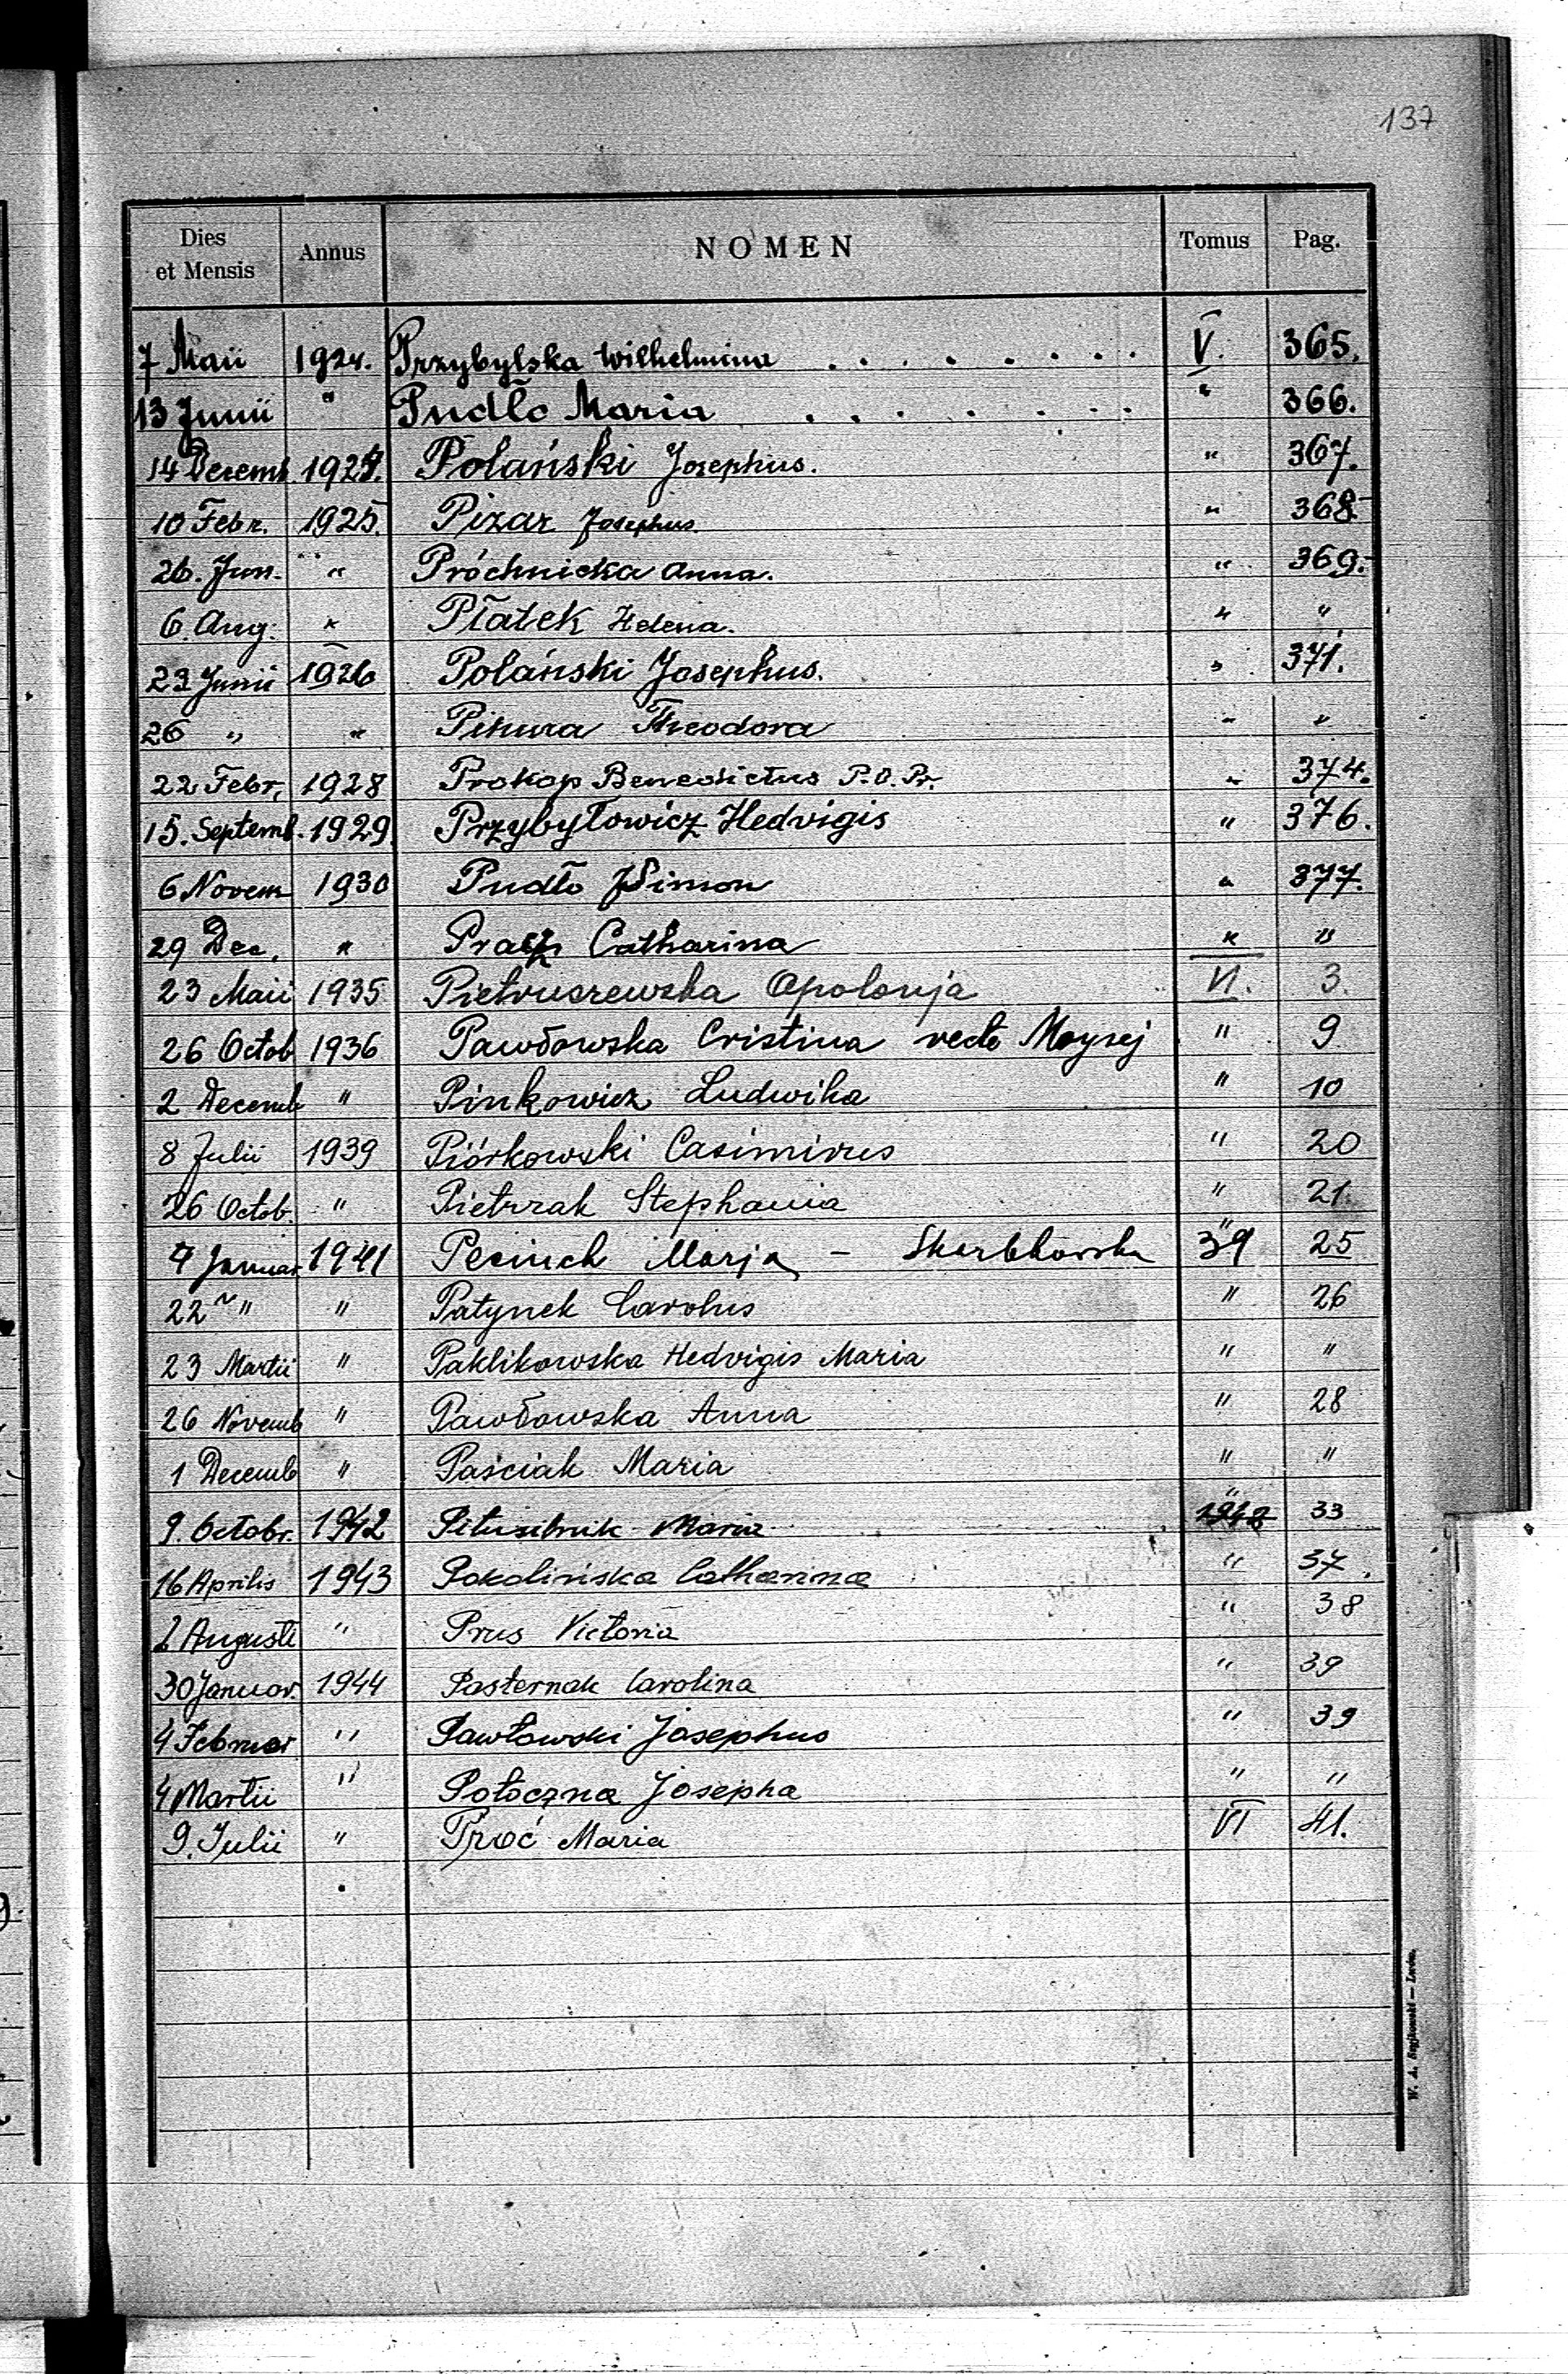 137
Dies et Mensis Annus NOMEN Tomus Pag.
7 Maii 1924. Przybylska Wilhelmina . . . . . . . V. 365.
13 Junii " Pudło Maria . . . . . . . " 366.
14 Decemb. 1924. Polański Josephus. " 367.
10 Febr. 1925. Pizar Josephus. " 368.
26. Jun. " Próchnicka Anna. " 369.
6. Aug. " Płatek Helena. " "
23 Junii 1926 Polański Josephus. " 371.
26 " " Pikura Theodora " "
22 Febr. 1928 Prokop Benedictus P.O.Pr. " 374.
15. Septemb. 1929. Przybyłowicz Hedvigis " 376.
6 Novem 1930 Pudło Simon " 377.
29 Dec. " Catharina " "
23 Maii 1935 Pietruszewska Apolonja VI. 3.
26 Octob 1936 Pawłowska Cristina recte Moysej " 9
2 Decemb " Pinkowicz Ludwika " 10
8 Julii 1939 Piórkowski Casimirus " 20
26 Octob. " Pietrzak Stephania " 21.
Januar 1941 Marja - " 39 25
22 " " Patynek Carolus " 26
23 Martii " Paklikowska Hedvigis Maria " "
26 Novemb " Pawłowska Anna " 28
1 Decemb " Paściak Maria " "
9. Octobr. 1942 Maria " 33
16 Aprilis 1943 Catharina " 37.
2 Augusti " Prus Victoria " 38
30 Januar. 1944 Pasternak Carolina " 39
4 Februar " Pawłowski Josephus " 39
4 Martii " Potoczna Josepha " "
9. Julii " Proć Maria VI 41.